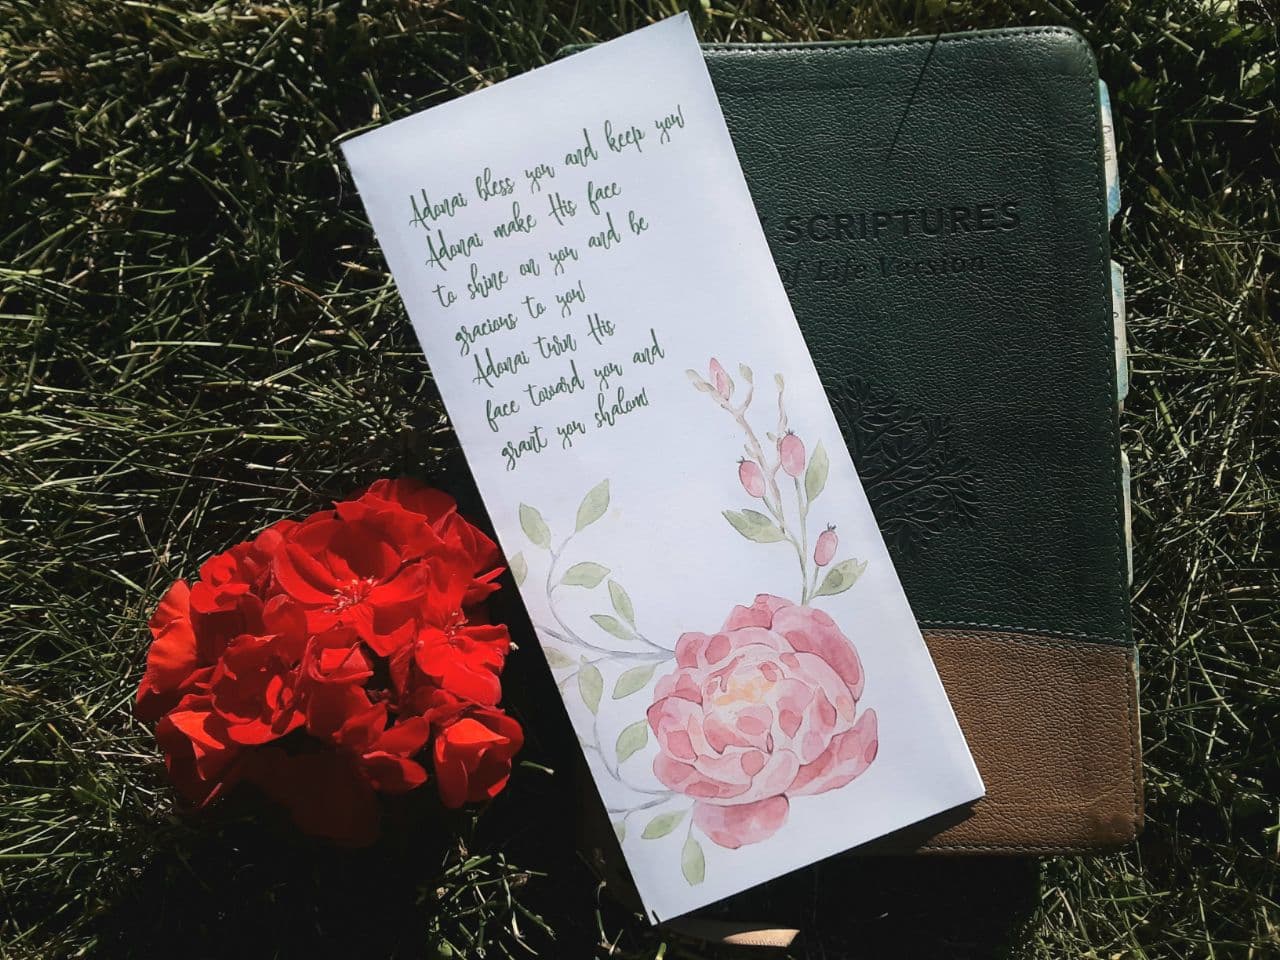 Adonai bless you and keep you!
Adonai make His face
to shine on you and be
gracious to you!
Adonai turn His
face toward you and
grant you shalom!
SCRIPTURES
of Life Version